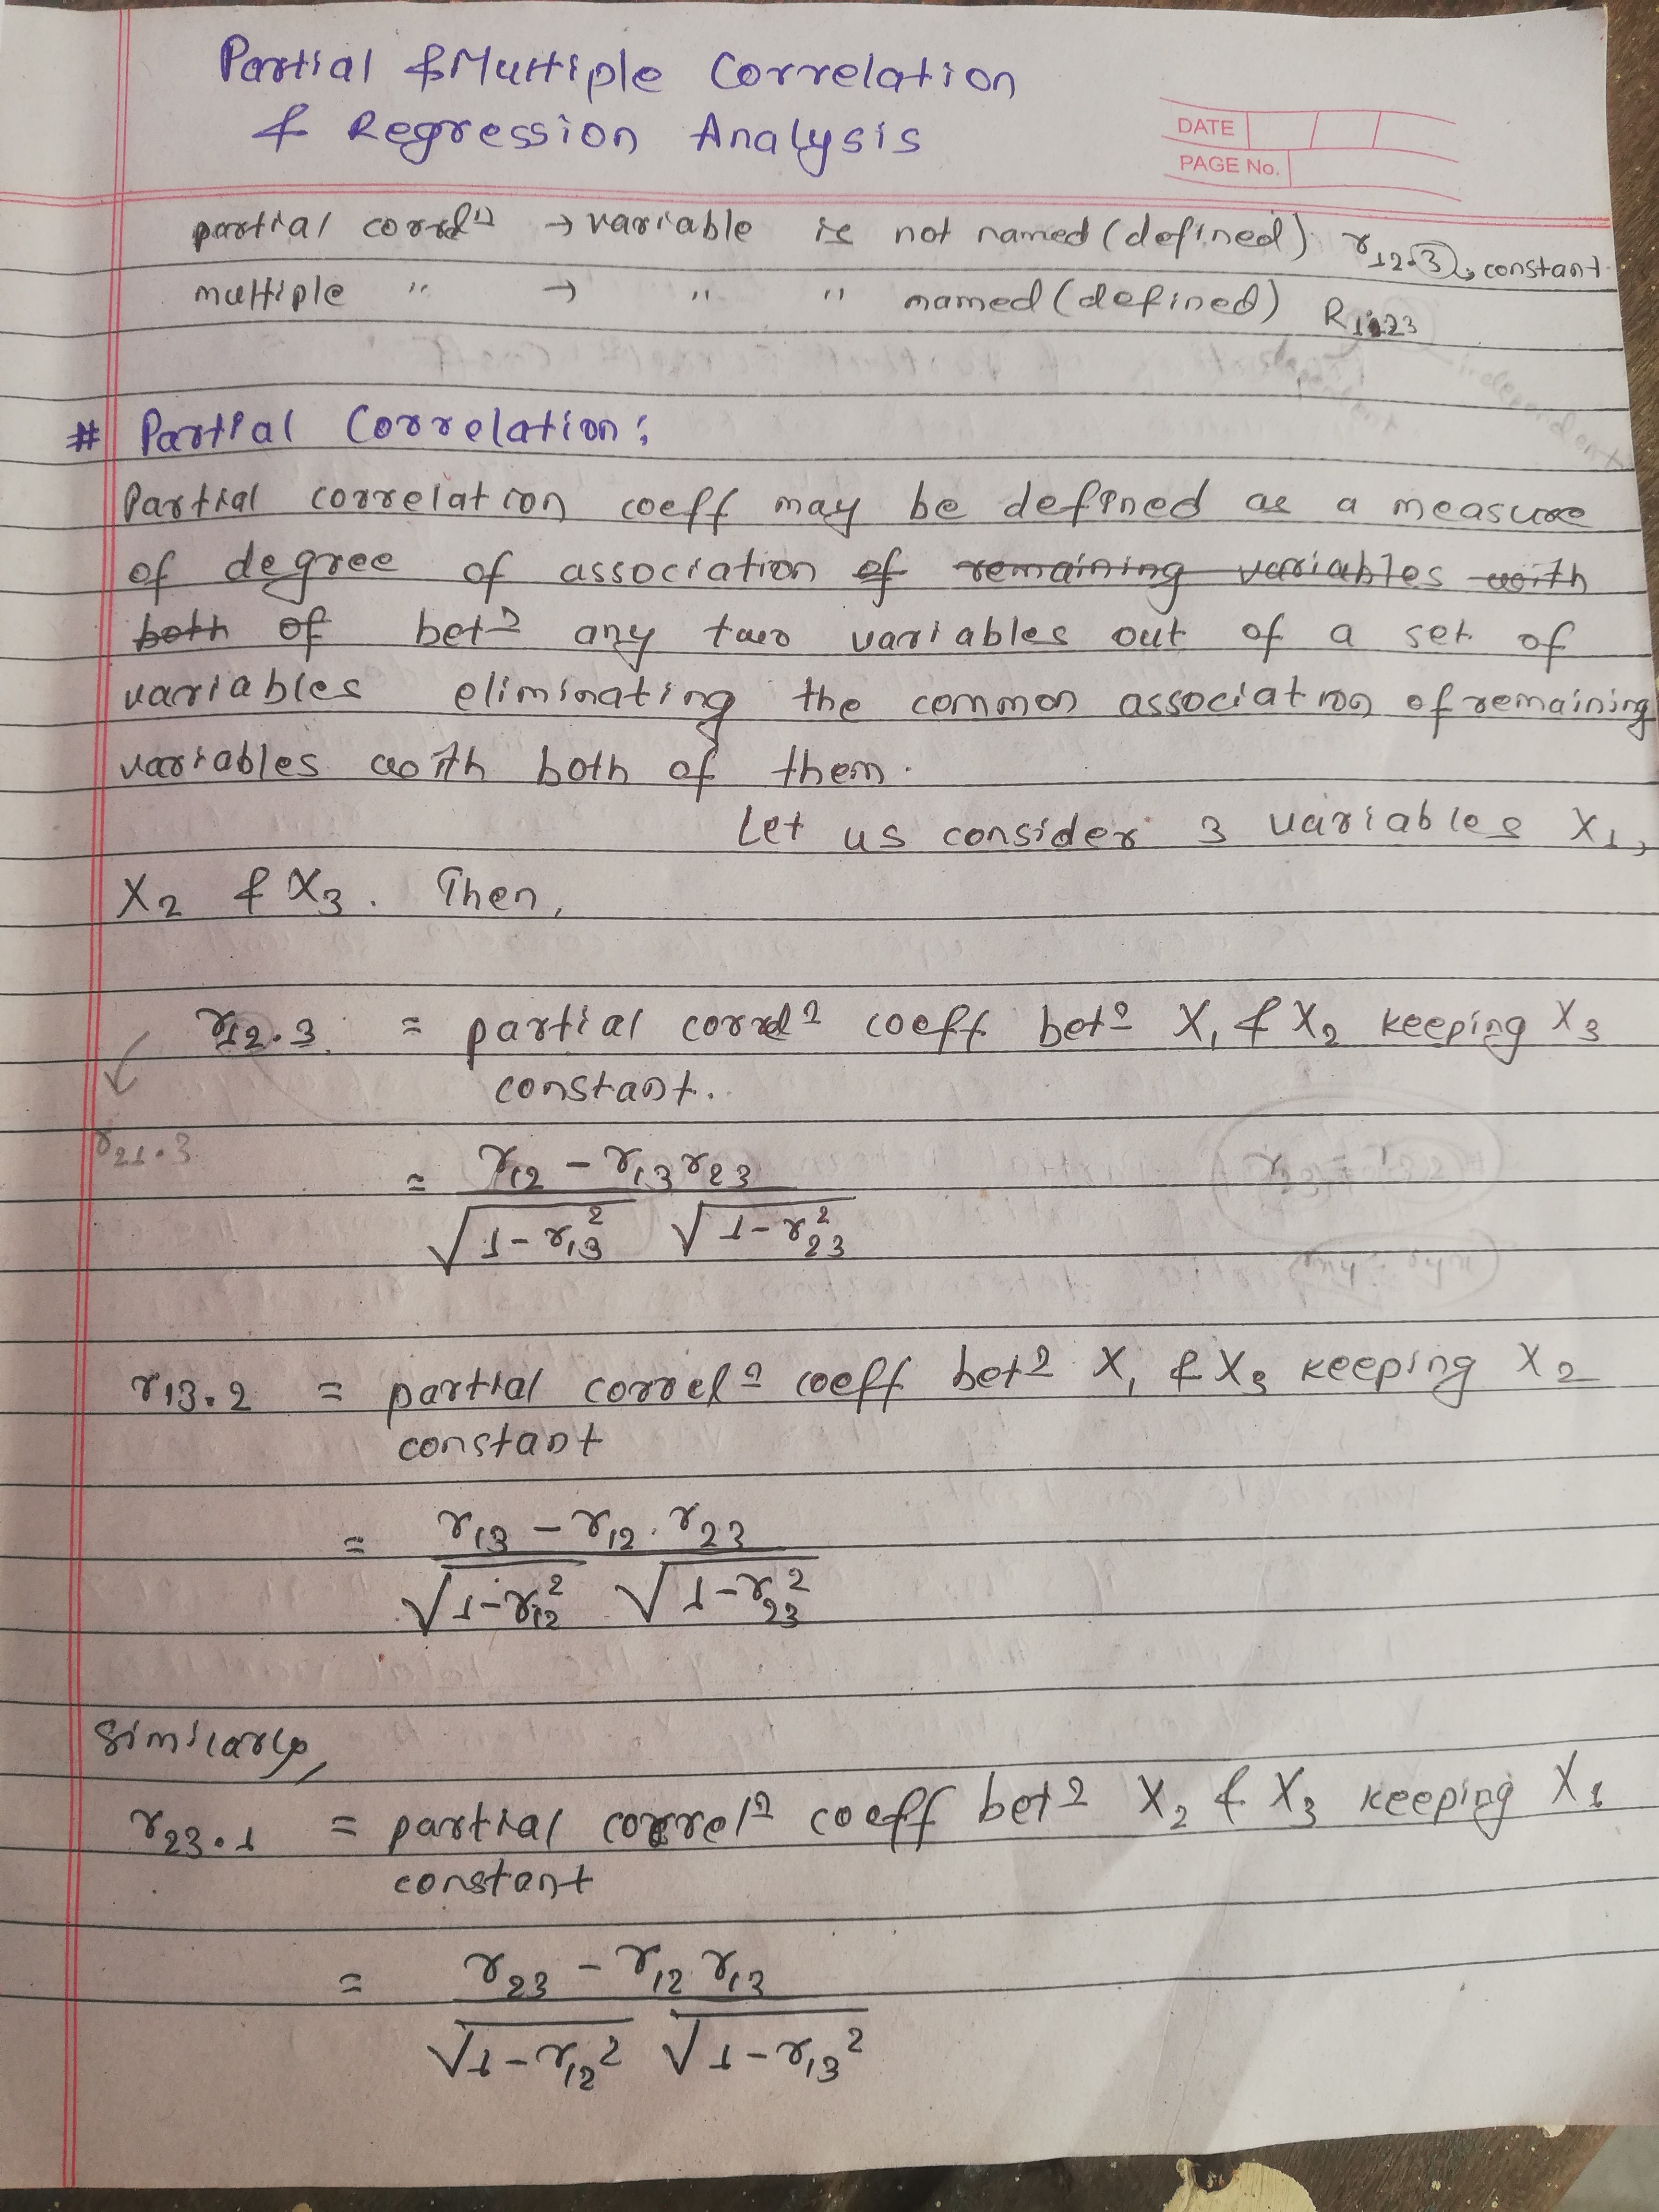 Partial & Multiple Correlation
& Regression Analysis
DATE
PAGE No.
partial correlⁿ → variable is not named (defined) r12.3 → constant
multiple " → " " named (defined) R1.23
dependent
independent
# Partial Correlation:
Partial correlation coeff may be defined as a measure
of degree of association of remaining variables with
both of betⁿ any two variables out of a set of
variables eliminating the common association of remaining
variables with both of them.
Let us consider 3 variables X1,
X2 & X3. Then,
r12.3 = partial correlⁿ coeff betⁿ X1 & X2 keeping X3
constant.
r21.3
= r12 - r13 r23
√1-r13² √1-r23²
r13.2 = partial correlⁿ coeff betⁿ X1 & X3 keeping X2
constant
= r13 - r12 . r23
√1-r12² √1-r23²
Similarly,
r23.1 = partial correlⁿ coeff betⁿ X2 & X3 keeping X1
constant
= r23 - r12 r13
√1-r12² √1-r13²